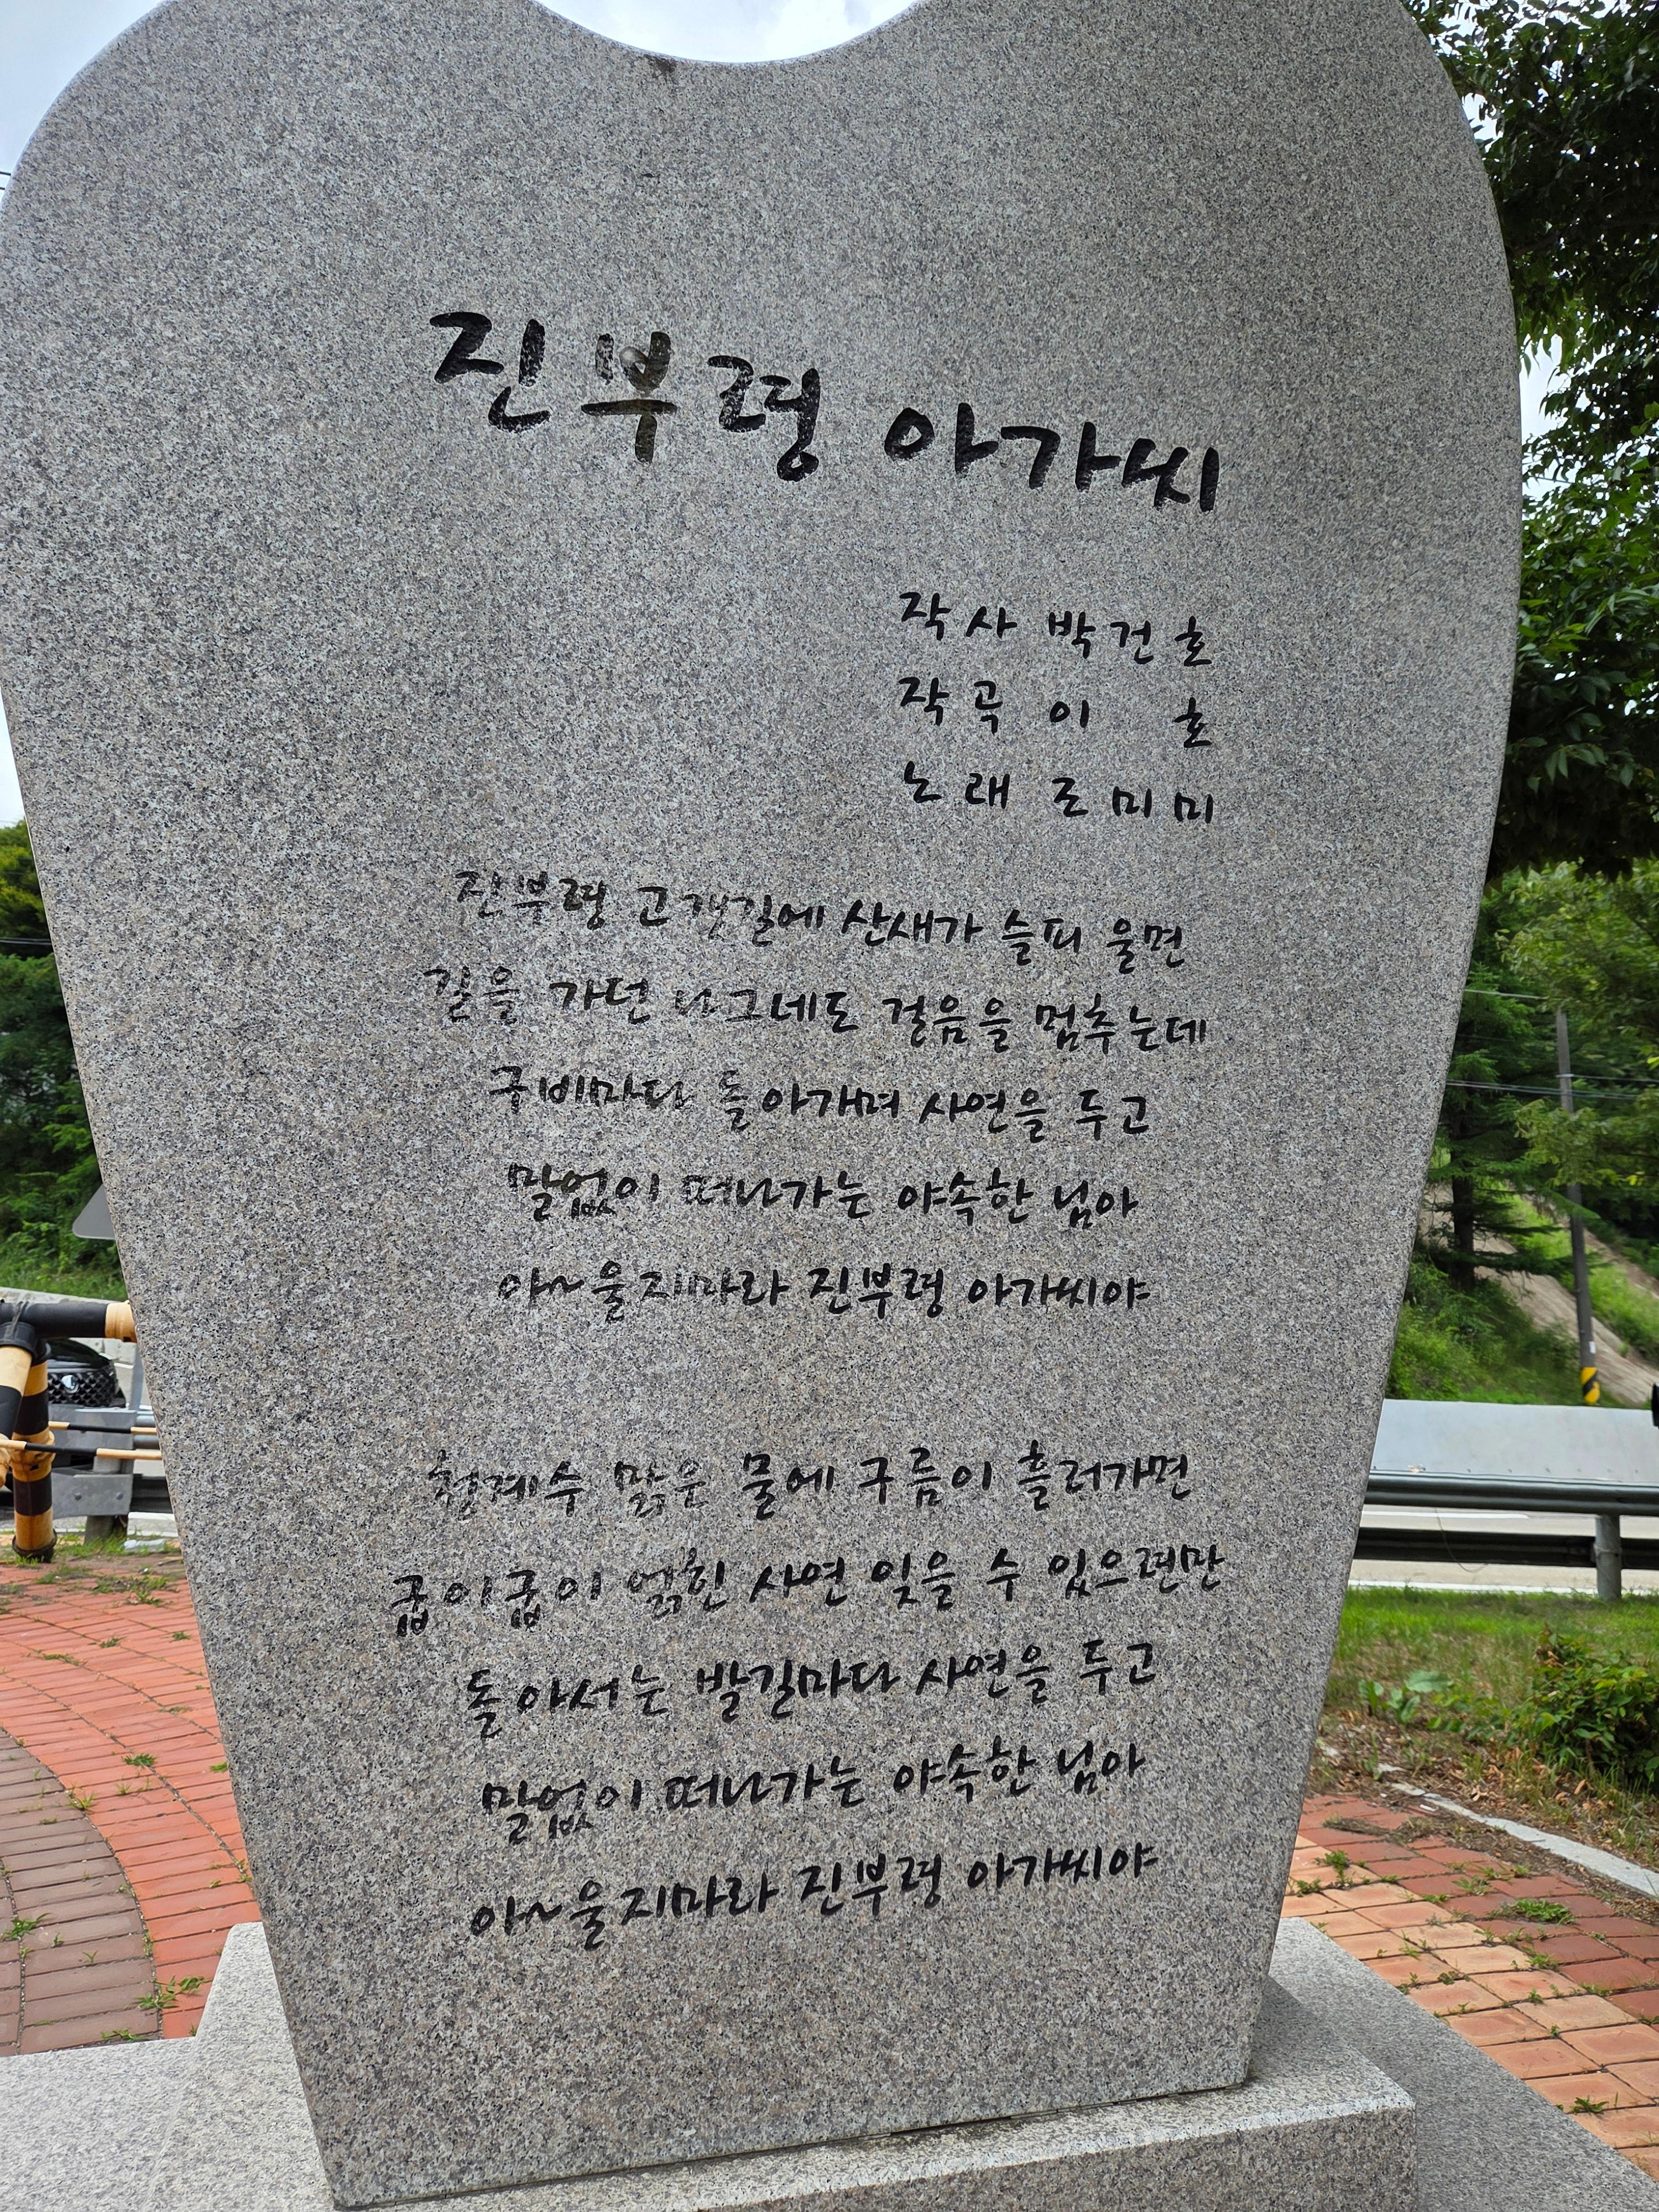 진부령 아가씨
작사 박건호
작곡 이 호
노래 조미미
진부령 고갯길에 산새가 슬피 울면
길을 가던 나그네도 걸음을 멈추는데
구비마다 돌아가며 사연을 두고
말없이 떠나가는 야속한 님아
아~울지마라 진부령 아가씨야
청계수 맑은 물에 구름이 흘러가면
굽이굽이 얽힌 사연 잊을 수 있으련만
돌아서는 발길마다 사연을 두고
말없이 떠나가는 야속한 님아
아~울지마라 진부령 아가씨야